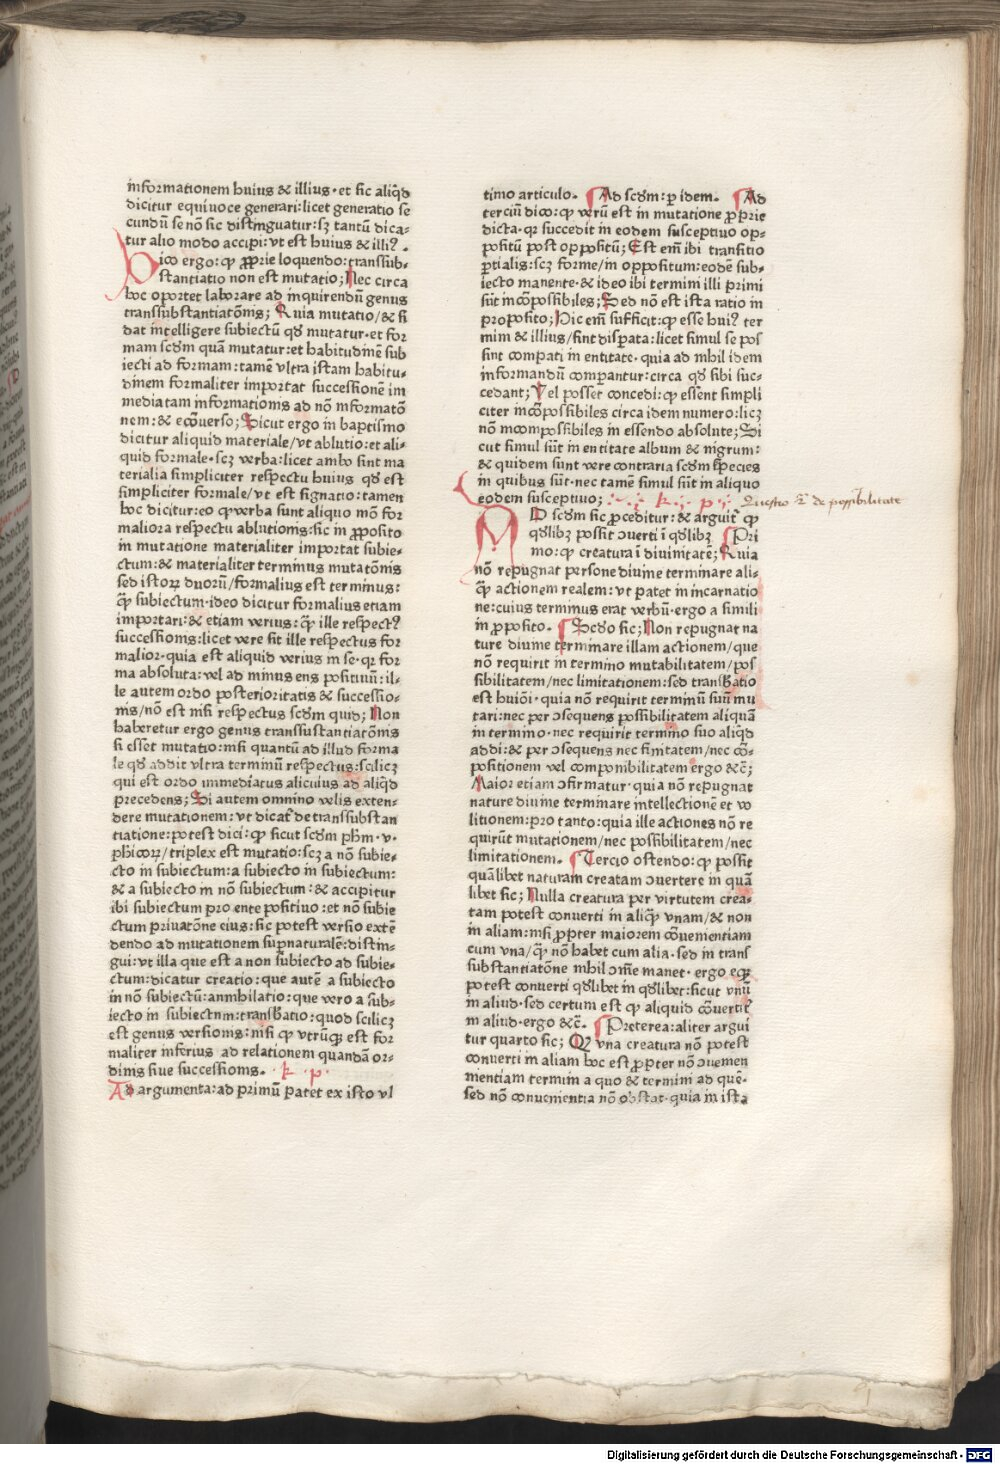 informationem huius & illius·et sic aliq̄d
dicitur equiuoce generari:licet generatio se
cundū se nō sic distinguatur:sꝫ tantū dica-
tur alio modo accipi:vt est huius & illiꝰ.
Dico ergo:qꝫ ꝓprie loquendo:transsub-
stantiatio non est mutatio; Nec circa
hoc oportet laborare ad inquirendū genus
transsubstantiatōnis; Quia mutatio/& si
dat intelligere subiectū qd̄ mutatur·et for
mam scd̄m quā mutatur:et habitudinē sub
iecti ad formam:tamē vltra istam habitu-
dinem formaliter importat successionē im
mediatam informationis ad nō informatō
nem:& ecōuerso; Sicut ergo in baptismo
dicitur aliquid materiale/vt ablutio:et ali-
quid formale·scꝫ verba:licet ambo sint ma
terialia simpliciter respectu huius qd̄ est
simpliciter formale/vt est signatio:tamen
hoc dicitur:eo qꝫ verba sunt aliquo mō for
maliora respectu ablutionis:sic in ꝓposito
in mutatione materialiter importat subie-
ctum:& materialiter terminus mutatōnis
sed istoꝝ duorū/formalius est terminus:
qꝫ subiectum·ideo dicitur formalius etiam
importari:& etiam verius:qꝫ ille respectꝰ
successionis:licet vere sit ille respectus for
malior·quia est aliquid verius in se·qꝛ for
ma absoluta:vel ad minus ens positiuū:il-
le autem ordo posterioritatis & successio-
nis/nō est nisi respectus scd̄m quid; Non
haberetur ergo genus transsustantiatōnis
si esset mutatio:nisi quantū ad illud forma
le qd̄ addit vltra terminū respectus:scilicꝫ
qui est ordo immediatus alicuius ad aliq̄d
precedens; Si autem omnino velis exten-
dere mutationem:vt dicat᷑ de transsubstan
tiatione:potest dici:qꝫ sicut scd̄m ph̄m·v·
ph̄icoꝝ/triplex est mutatio:scꝫ a nō subie-
cto in subiectum:a subiecto in subiectum:
& a subiecto in nō subiectum:& accipitur
ibi subiectum pro ente positiuo:et nō subie
ctum priuatōne eius:sic potest versio extē
dendo ad mutationem supnaturalē:distin-
gui:vt illa que est a non subiecto ad subie-
ctum:dicatur creatio:que autē a subiecto
in nō subiectū:annihilatio:que vero a sub-
iecto in subiectum:transb̄atio:quod scilicꝫ
est genus versionis:nisi qꝫ vtrūqꝫ est for
maliter inferius ad relationem quandā or-
dinis siue successionis. · k · p ·
Ad argumenta:ad primū patet ex isto vl
timo articulo. Ad scd̄m:ꝑ idem. Ad
terciū dico:qꝫ verū est in mutatione ꝓprie
dicta·qꝛ succedit in eodem susceptiuo op-
positū post oppositū; Est em̄ ibi transitio
ꝑtialis:scꝫ forme/in oppositum:eodē sub-
iecto manente·& ideo ibi termini illi primi
sūt incōpossibiles; Sed nō est ista ratio in
proposito; Hic em̄ sufficit:qꝫ esse huiꝰ ter
mini & illius/sint disꝑata:licet simul se pos
sint compati in entitate·quia ad nihil idem
informandū comparantur:circa qd̄ sibi suc-
cedant; Vel posset concedi:qꝫ essent simpli
citer incōpossibiles circa idem numero:licꝫ
nō incompossibiles in essendo absolute; Si
cut simul sūt in entitate album & nigrum:
& quidem sunt vere contraria scd̄m species
in quibus sūt·nec tamē simul sūt in aliquo
eodem susceptiuo; · k · p · Questio 2ᵃ de possibilitate
AD scd̄m sic ꝓceditur:& arguit᷑ qꝫ
qd̄libꝫ possit ↄuerti ī qd̄libꝫ Pri
mo:qꝫ creatura ī diuinitatē; Quia
nō repugnat persone diuine terminare ali-
qꝫ actionem realem:vt patet in incarnatio
ne:cuius terminus erat verbū·ergo a simili
in ꝓposito. Scd̄o sic; Non repugnat na
ture diuine terminare illam actionem/que
nō requirit in termino mutabilitatem/pos
sibilitatem/nec limitationem:sed transb̄atio
est huiōi·quia nō requirit terminū suū mu
tari:nec per ↄsequens possibilitatem aliquā
in termino·nec requirit termino suo aliq̄d
addi:& per ↄsequens nec finitatem/nec cō-
positionem vel componibilitatem ergo &c̄;
Maior etiam ↄfirmatur·quia nō repugnat
nature diuine terminare intellectionē et vo
litionem:pro tanto:quia ille actiones nō re
quirūt mutationem/nec possibilitatem/nec
limitationem. Tercio ostendo:qꝫ possit
quālibet naturam creatam ↄuertere in quā
libet sic; Nulla creatura per virtutem crea-
tam potest conuerti in aliqꝫ vnam/& non
in aliam:nisi ꝓpter maiorem cōuenientiam
cum vna/qꝫ nō habet cum alia·sed in trans
substantiatōne nihil ↄm̄e manet·ergo eqꝫ
potest conuerti qd̄libet in qd̄libet:sicut vnū
in aliud·sed certum est qꝫ aliquid cōuertit᷑
in aliud·ergo &c̄. Preterea:aliter argui
tur quarto sic; Qꝫ vna creatura nō potest
conuerti in aliam hoc est ꝓpter nō ↄuenien
nientiam termini a quo & termini ad quē-
sed nō conuenientia nō obstat·quia in ista
Digitalisierung gefördert durch die Deutsche Forschungsgemeinschaft - DFG